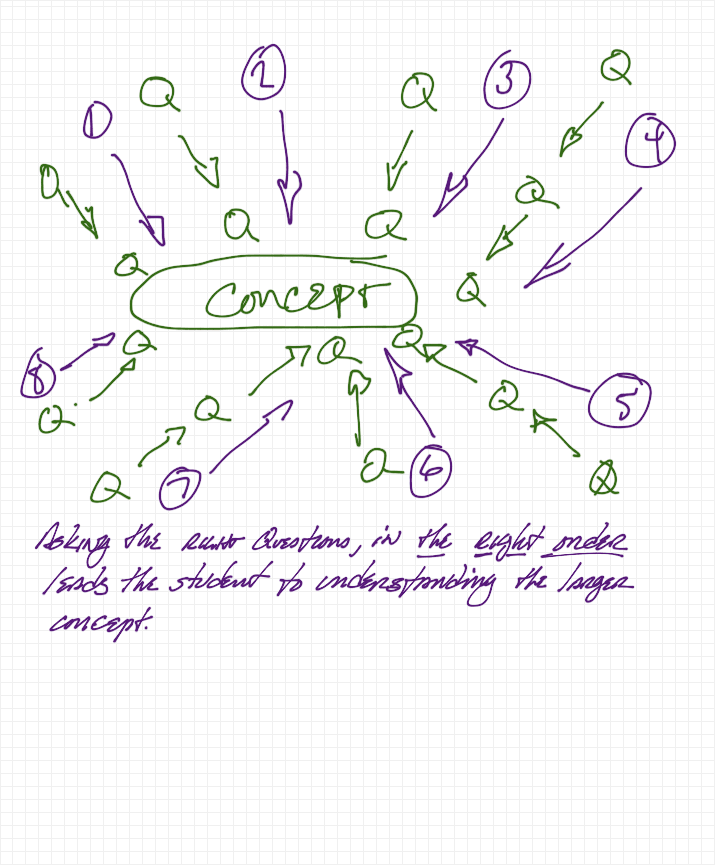 Q 2 Q 3 Q
1 4
Q Q
Q Q
Q Q
Concept
Q Q Q
8 Q 5
Q Q
Q 7 Q 6 Q
Asking the right Questions, in the right order
leads the student to understanding the larger
concept.